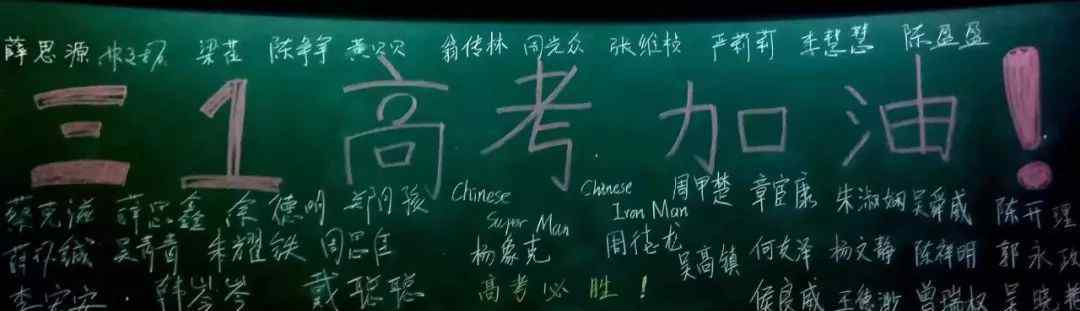 薛思源 梁茬 陈争争 黄贝贝 翁传林 周光众 张维校 严莉莉 李慧慧 陈盈盈
三1高考加油!
蔡克滋 薛思鑫 余德明 Chinese Chinese 周甲楚 章官康 朱淑娴 吴舜威 陈开理
Super Man Iron Man
薛丹铖 吴青青 朱耀铁 周思 杨象克 周德龙 吴高镇 何友泽 杨文静 陈祥明 郭永政
李安安 韩岑岑 戴聪聪 高考必胜! 侯良威 王德渺 曾瑞权 吴晓燕